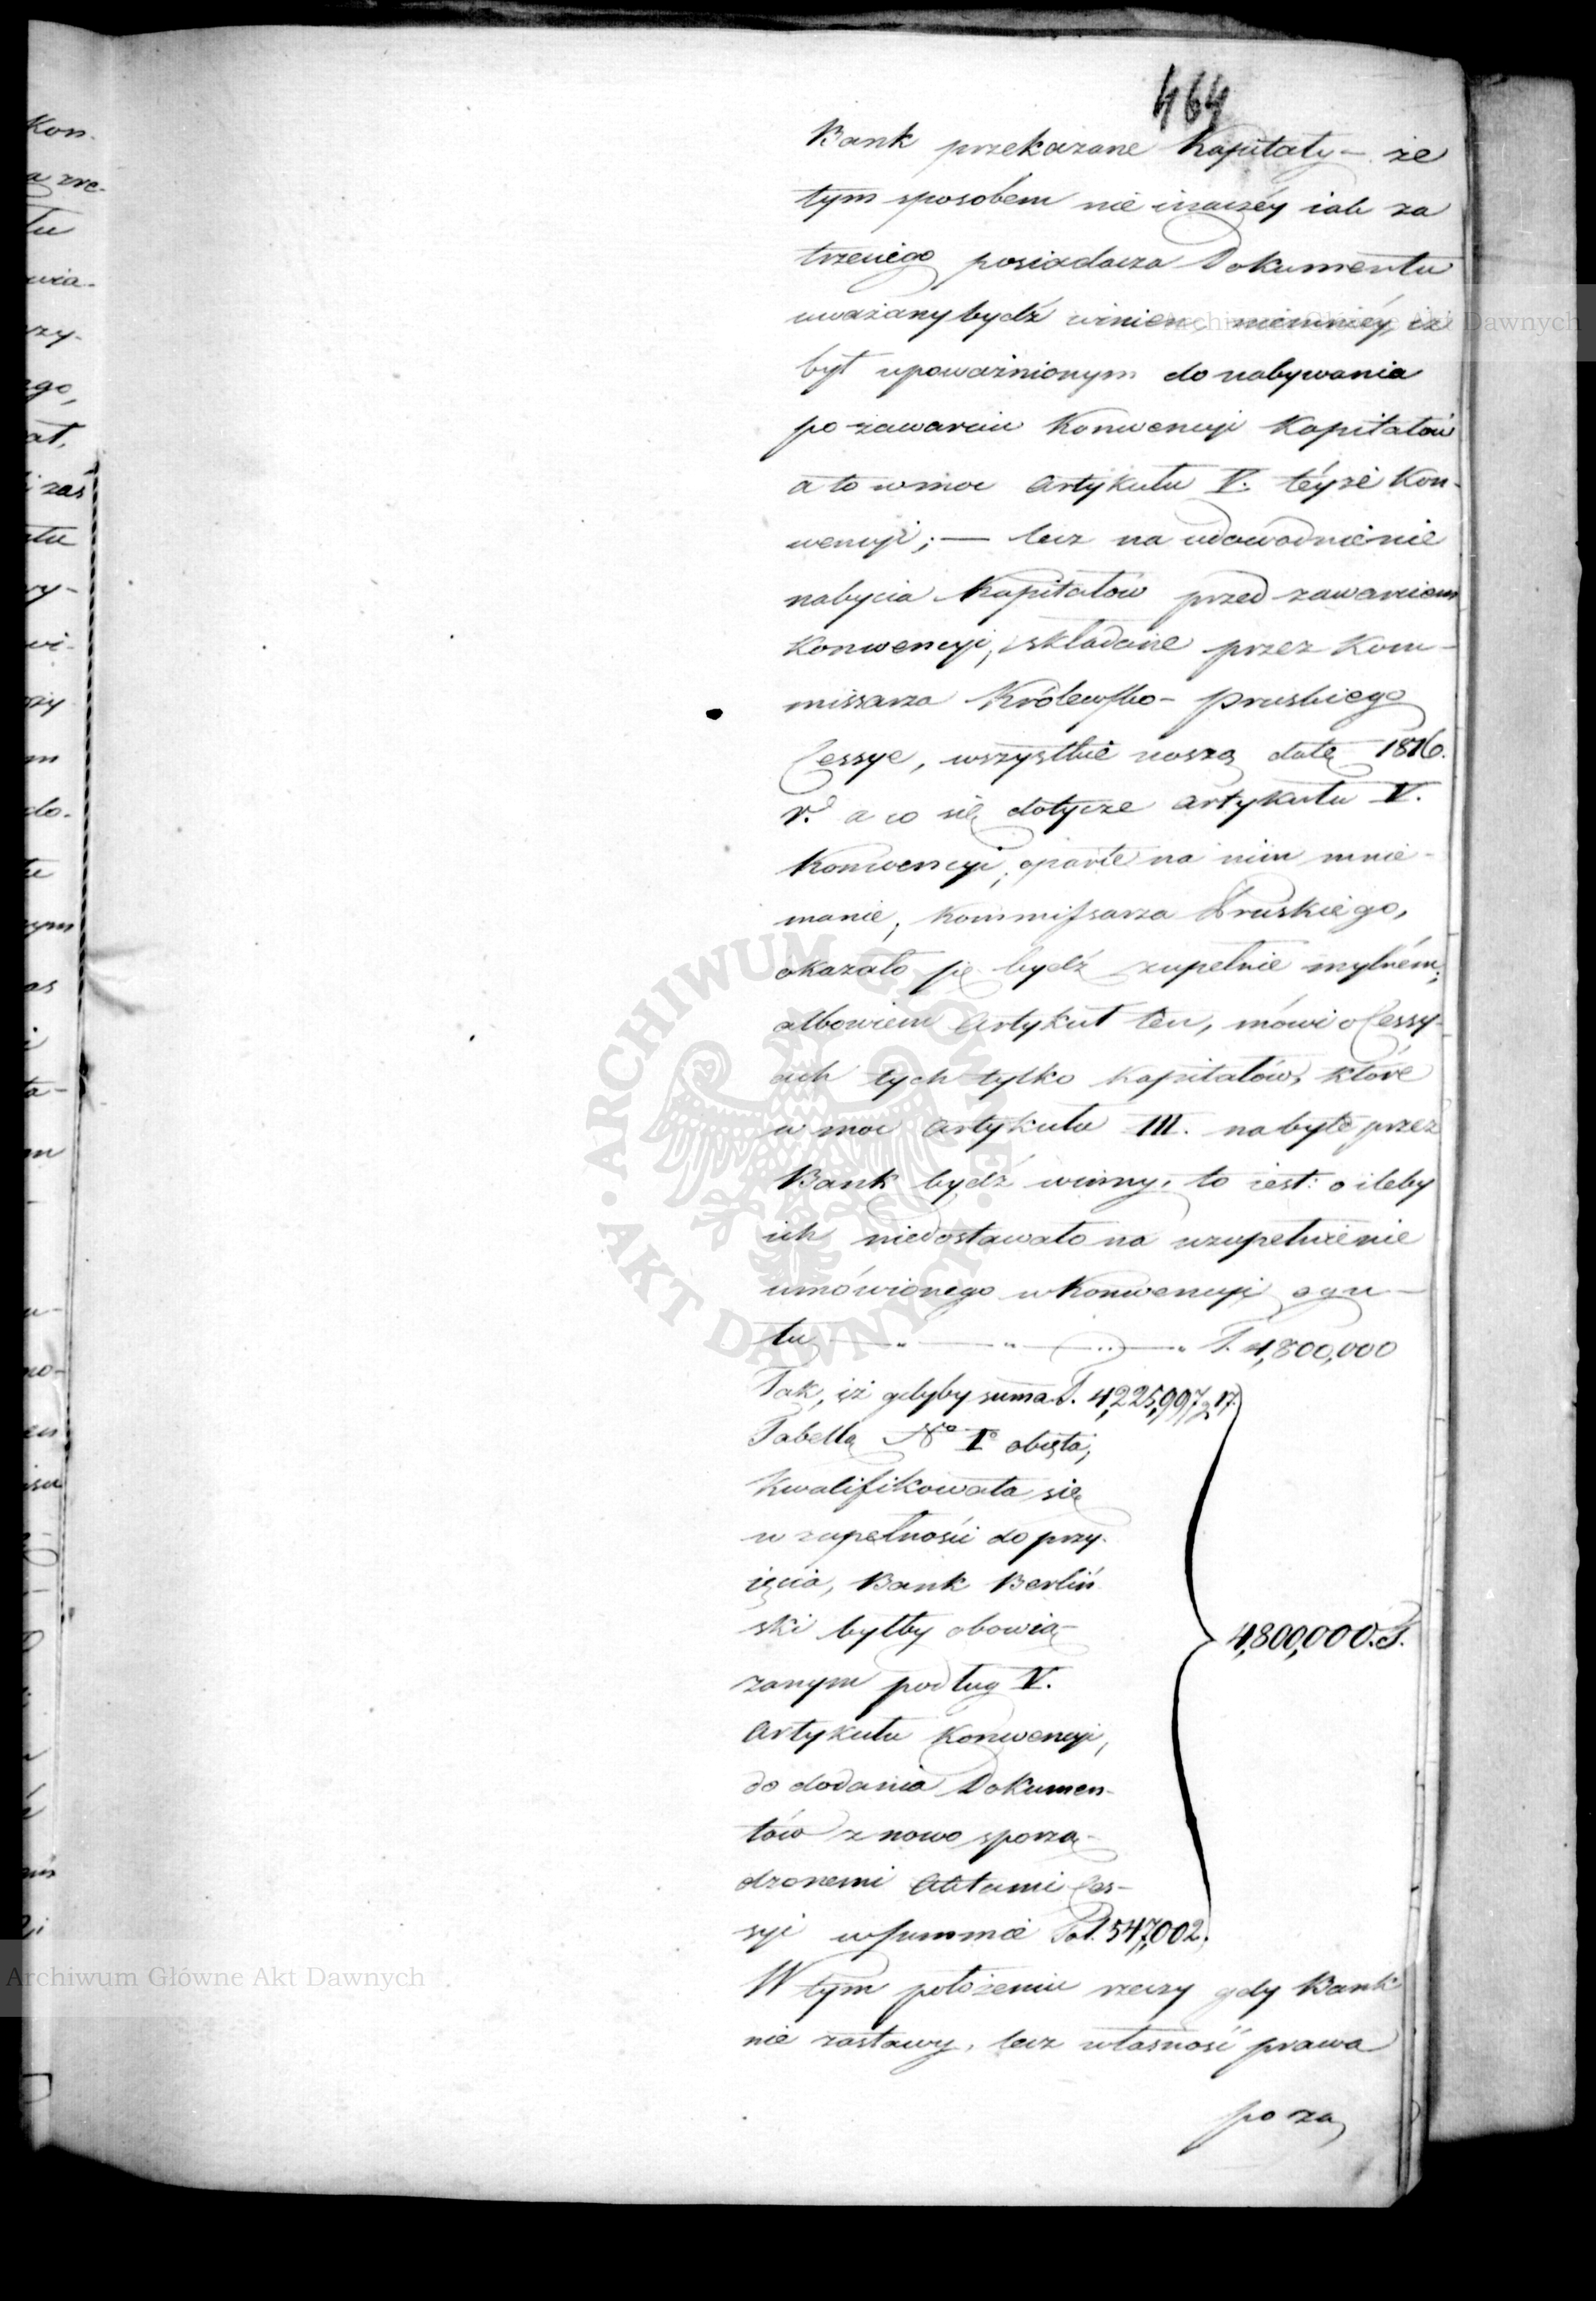 464
Bank przekazane Kapitały – że
tym sposobem nie inaczéy iak za
trzeciego posiadacza Dokumentu
uważany bydź winien, niemniéy, iż
był upoważnionym do nabywania
po zawarciu Konwencyi Kapitałów
a to w moc Artykułu V. téyże Kon-
wencyi; — lecz na udowodnienie
nabycia Kapitałów przed zawarciem
Konwencyi, składane przez Kom-
missarza Królewsko-Pruskiego
Cessye, wszystkie noszą datę 1816.
r. a co się dotycze Artykułu V.
Konwencyi, oparte na nim mnie-
manie, Kommissarza Pruskiego,
okazało się bydź zupełnie mylném;
albowiem Artykuł ten, mówi o Cessy-
ach tych tylko Kapitałów, które
w moc Artykułu III. nabyte przez
Bank bydź winny, to iest: o ileby
ich niedostawało na uzupełnienie
umówionego w Konwencyi ogu-
łu — " — " — " — " T. 4,800,000
Tak, iż gdyby suma T. 4,225,997, 2, 17.
Tabellą No I. obięta,
kwalifikowała się
w zupełności do przy-
ięcia, Bank Berliń-
ski byłby obowią-
zanym podług V.
Artykułu Konwencyi,
do dodania Dokumen-
tów z nowo sporzą-
dzonemi Aktami Ces-
syi w summie Tal. 547,002.
4,800,000. T.
W tym położeniu rzeczy gdy Bank
nie zastawy, lecz własność prawa
poza
Kon-
Archiwum Główne Akt Dawnych
ARCHIWUM GŁÓWNE AKT DAWNYCH
Archiwum Główne Akt Dawnych